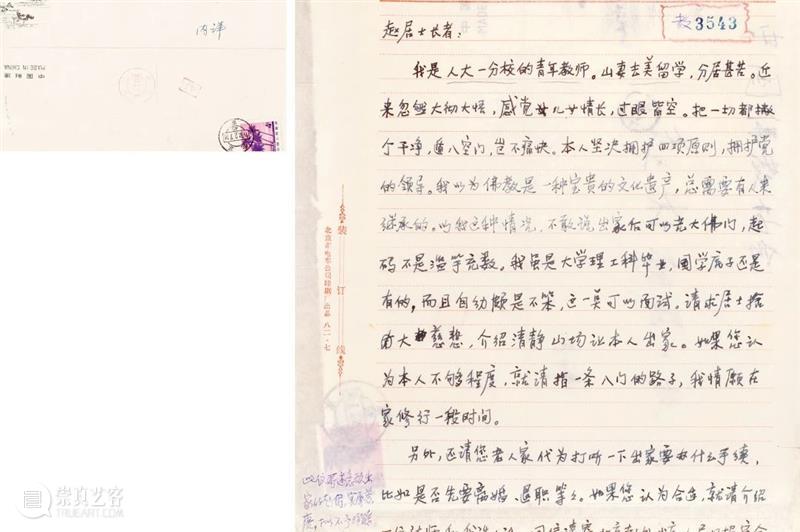 内详
中国制造
MADE IN CHINA
3543
赵居士长者：
我是人大一分校的青年教师。山妻去美留学，分居甚苦。近
来忽然大彻大悟，感觉儿女情长，过眼皆空。把一切都撇
个干净，遁入空门，岂不痛快。本人坚决拥护四项原则，拥护党
的领导。我以为佛教是一种宝贵的文化遗产，总需要有人来
继承的。以我这种情况，不敢说出家后可以光大佛门，起
码不是滥竽充数。我虽是大学理工科毕业，国学底子还是
有的，而且自幼颇是不笨，这一莫可以面试。请求居士捨
由大慈悲，介绍清静山场让本人出家。如果您认
为本人不够程度，就请指一条入门的路子，我情愿在
家修行一段时间。
另外，还请您老人家代为打听一下出家要办什么手续，
比如是否先要离婚、退职等等。如果您认为合适，就请介绍
装订线
北京市电车公司印刷厂出品 八二·七
崇真艺客